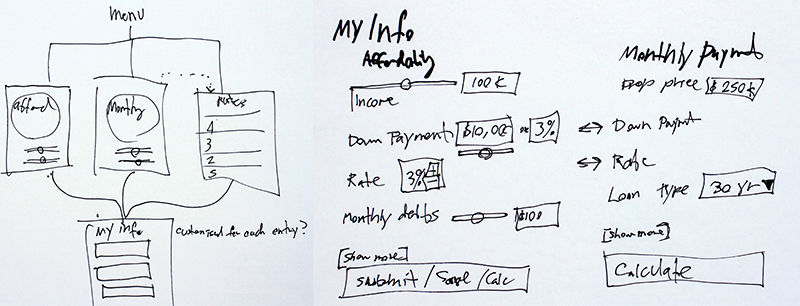 menu
Afford
Monthly
Rates
4
3
2
5
My info
customized for each entry?
My Info
Affordability
100k
Income
Down Payment $10,000 or 3%
Rate 3% + -
Monthly debts $100
[show more]
submit / Save / Calc
Monthly Paymnt
Prop price $250k
↔ Down Paymt
↔ Rate
Loan type 30 yr ▼
[show more]
Calculate